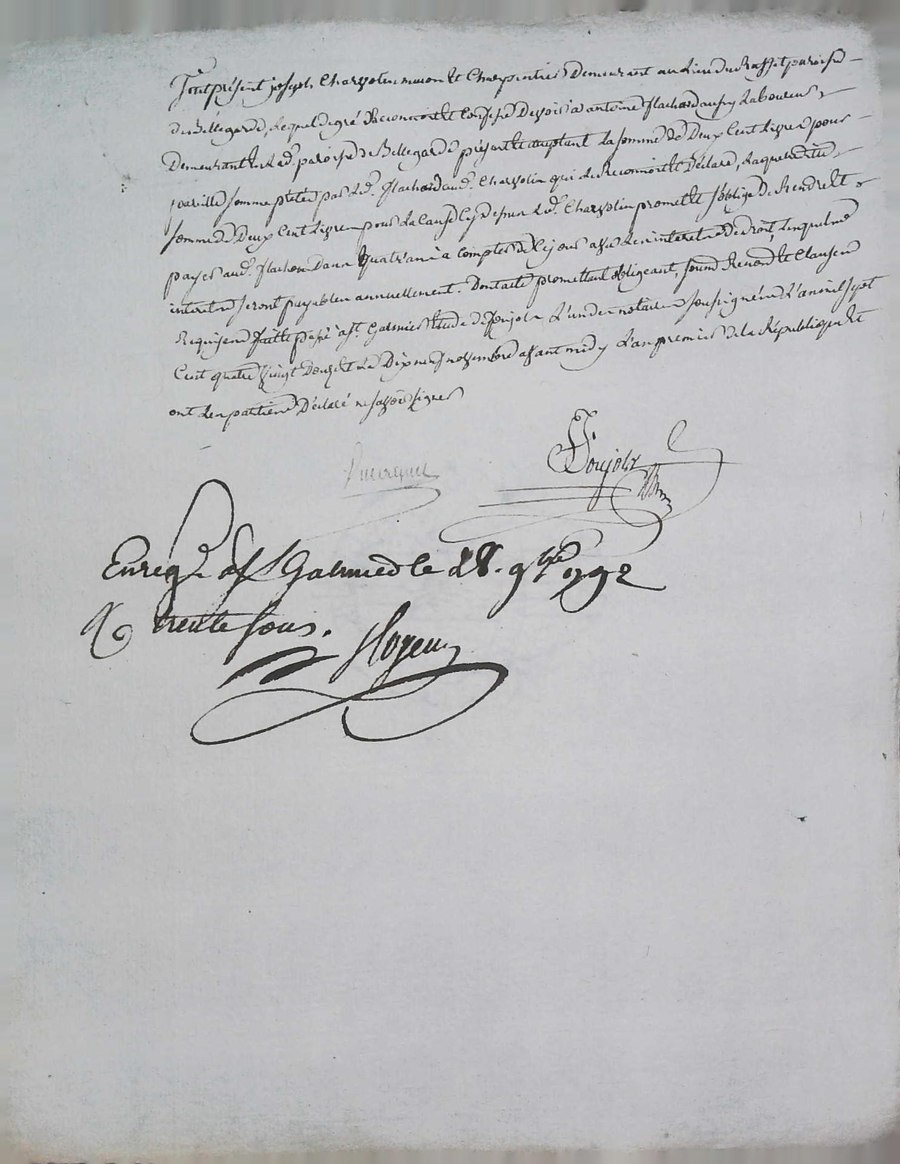 fut présent joseph Charsolin masson et Charpentier Demeurant au lieu du paroisse
de Bellegarde, lequel de gré Reconnoit et Confesse Devoir a antoine flachard Laboureur
Demeurant en lad. paroisse de Bellegarde présent et acceptant La somme de Deux Cent livres pour
pareille somme pretée par led. flachard aud. Charsolin qui le Reconnoit et Déclare, Laquelle ditte
somme de Deux Cent livres pour la Cause Cy dessus led. Charsolin promet et s'oblige de Rendre et
payer aud. flachard Dans quatre ans à compter de Ce jour avec les interets de droit, lesquels
interets seront payables annuellement. Dont acte promettant obligeant, soums. Renon. et Clauses
Requises, faitte passé a St. Galmier Etude de Poujola L'un des notaires soussignés L'an mil sept
Cent quatre vingt Douze et le Dix neuf novembre avant midy L'an premier de la République et
ont les parties Déclaré ne savoir signer
Poujola
Enregr. a St Galmier le 28. 9bre 1792
R. trente sous.